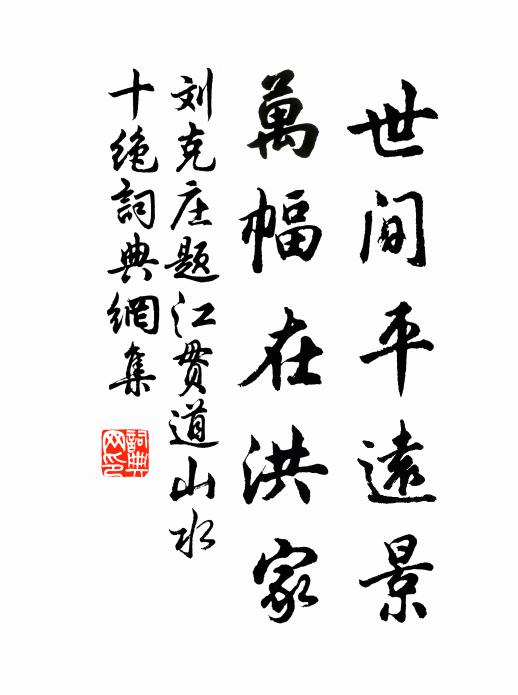 世间平遠景
萬幅在洪家
刘克庄题江贯道山水
十绝詞典網集
詞典
网印